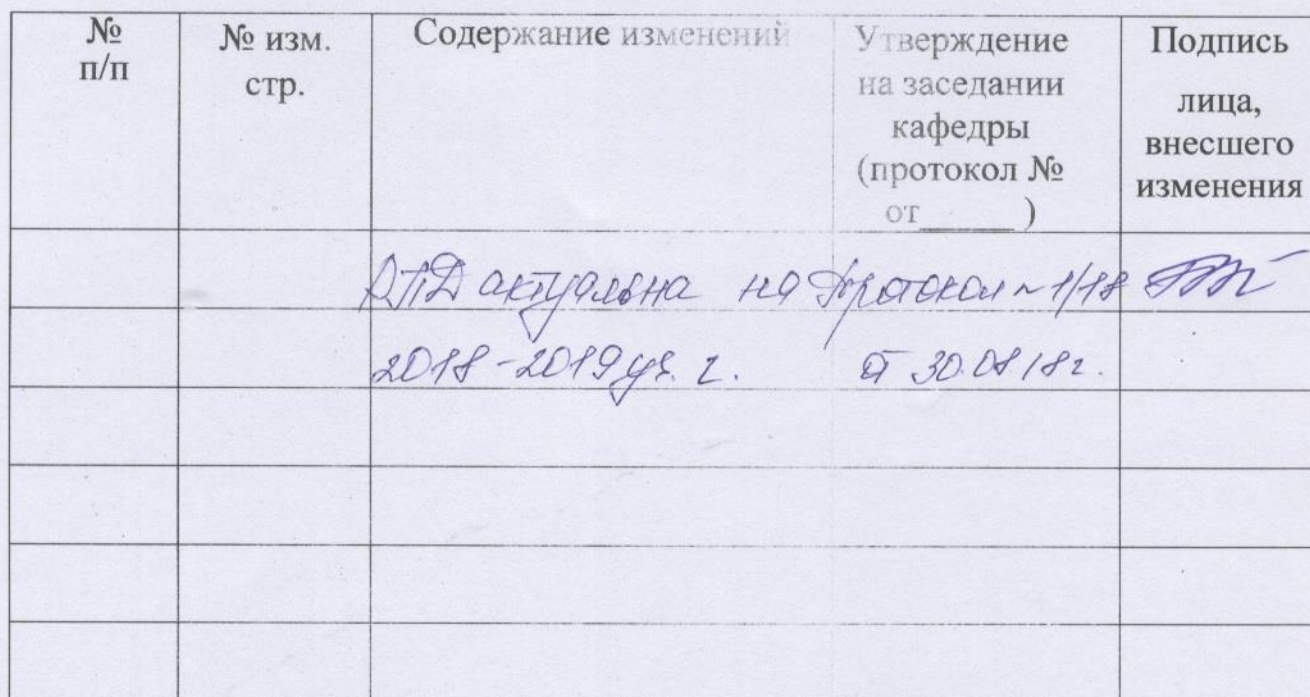 № п/п
№ изм. стр.
Содержание изменений
Утверждение на заседании кафедры (протокол № от______ )
Подпись лица, внесшего изменения
РПД актуальна на Протокол № 1/18
2018-2019 уч. г. от 30.08.18г.